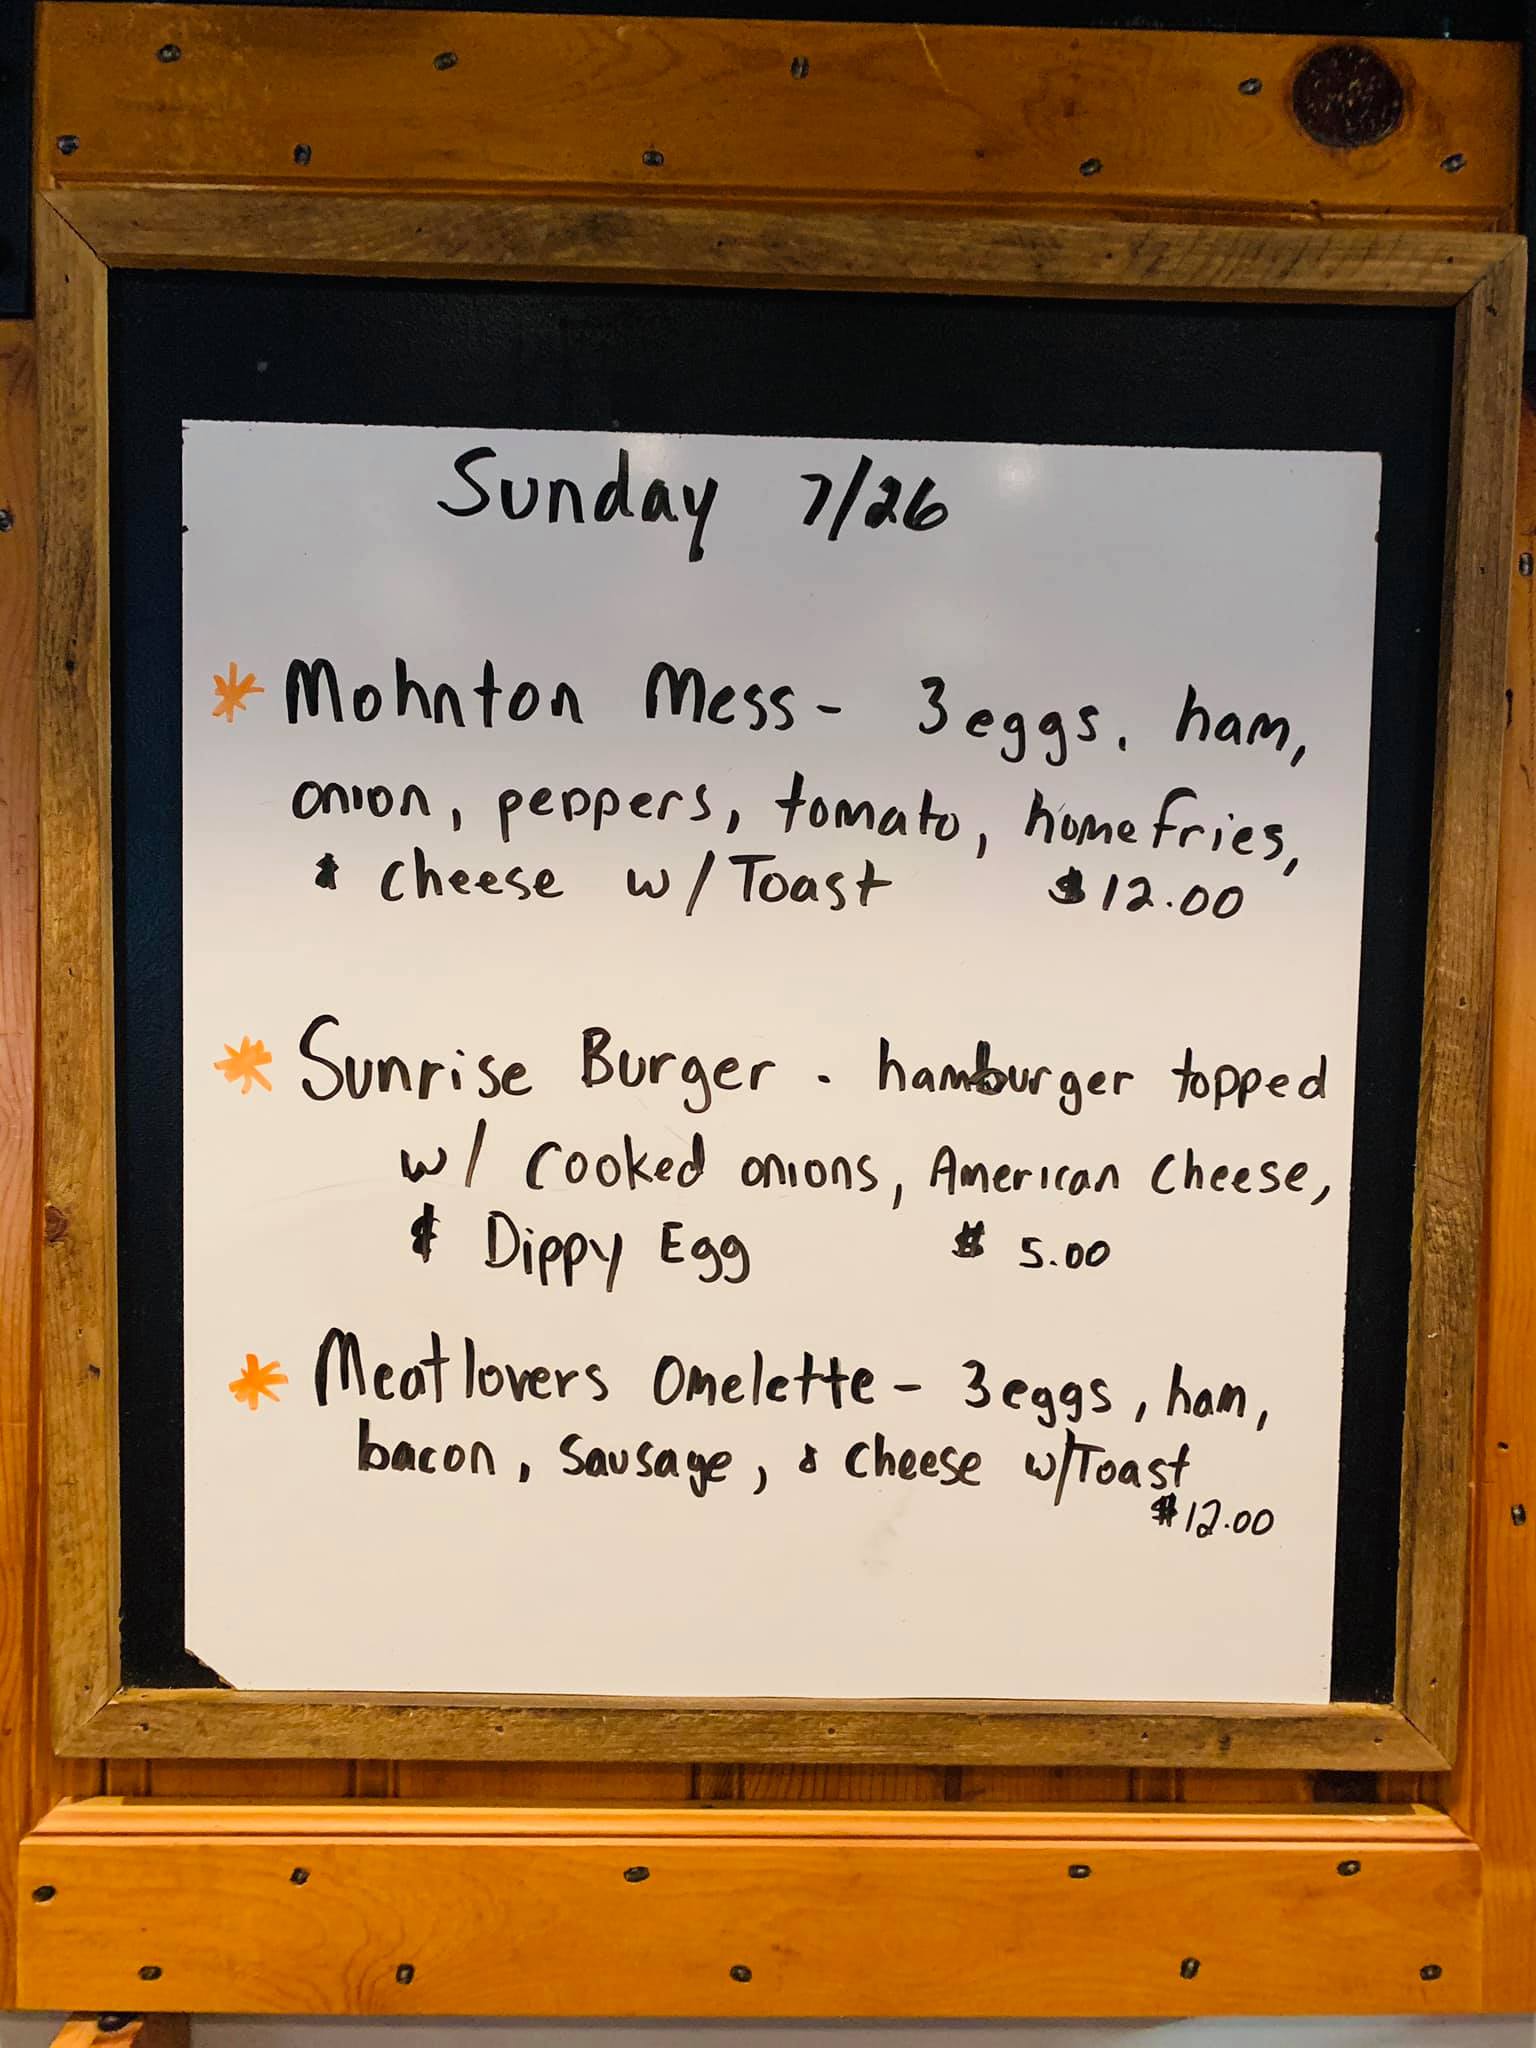 Sunday 7/26
* Mohnton Mess - 3 eggs, ham,
onion, peppers, tomato, homefries,
& cheese w/ Toast $12.00
* Sunrise Burger - hamburger topped
w/ cooked onions, American Cheese,
& Dippy Egg $5.00
* Meatlovers Omelette - 3 eggs, ham,
bacon, sausage, & cheese w/Toast
$12.00